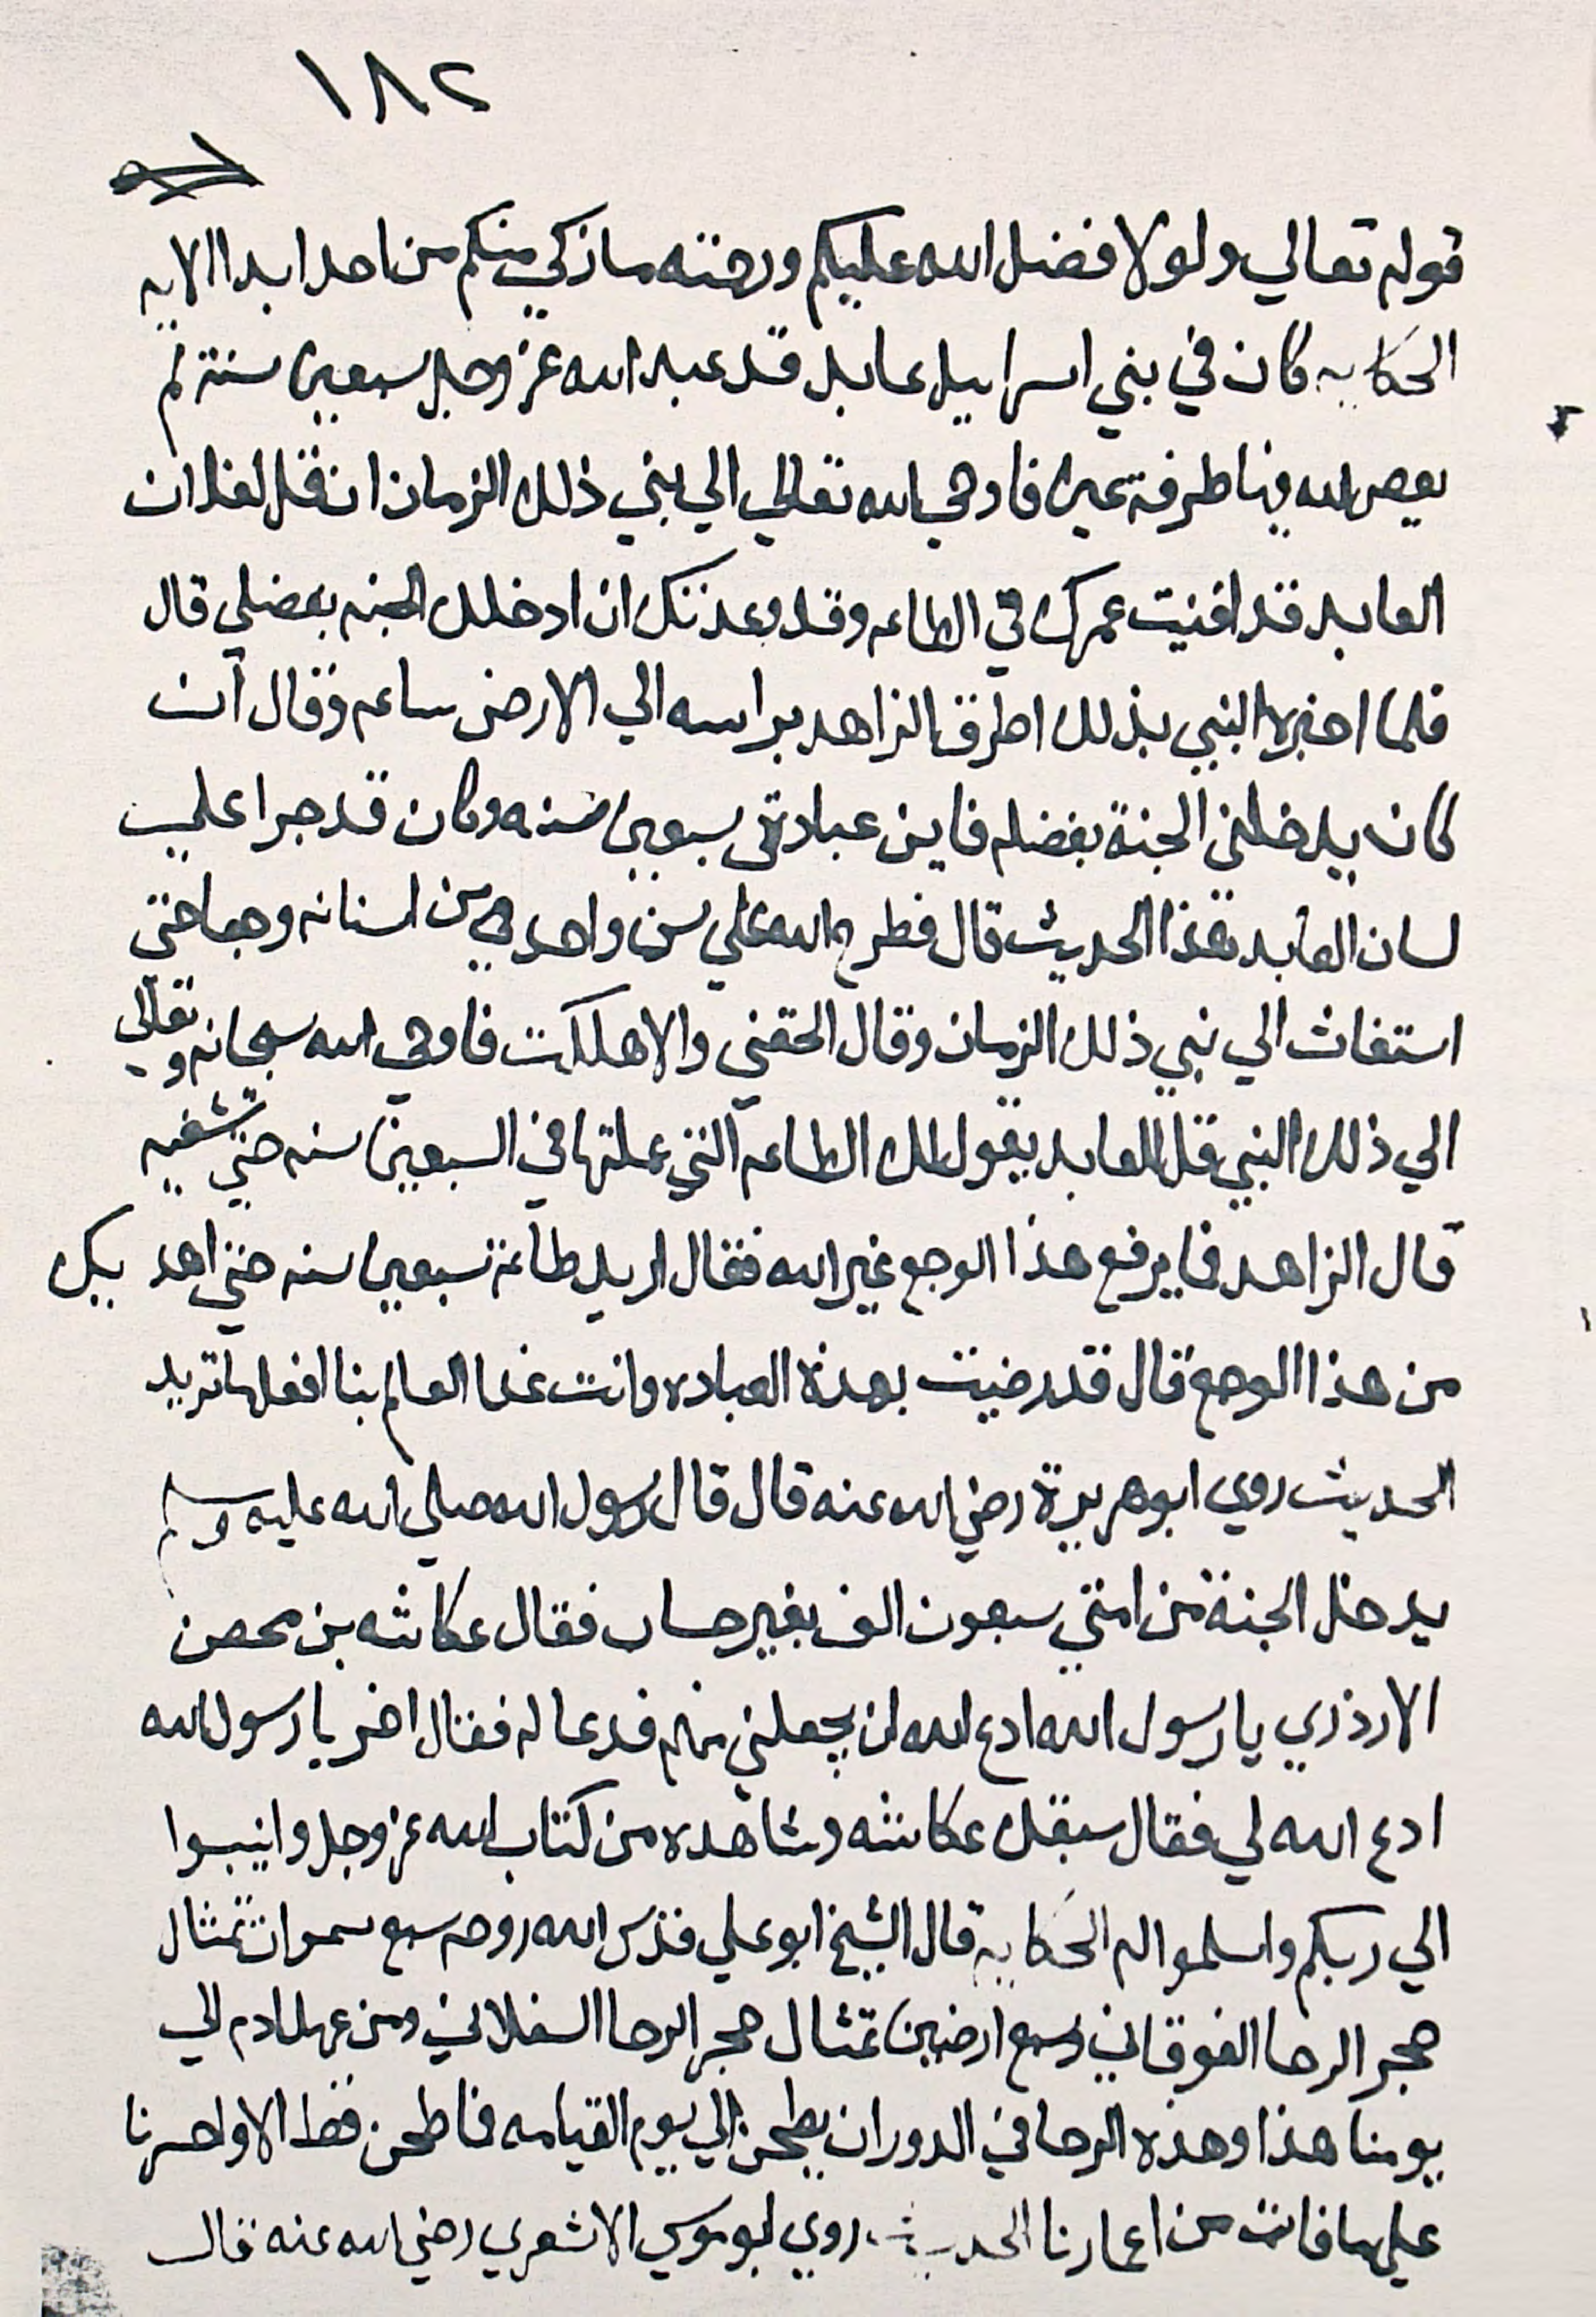 ١٨٢
قوله تعالي ولولا فضل الله عليكم ورحمته ما زكي منكم من احد ابدا الايه
الحكايه كان في بني اسراييل عابد قد عبد الله عز وجل سبعين سنة لم
يعص الله فيها طرفة عين فاوحي الله تعالي الي نبي ذلك الزمان ان قل لفلان
العابد قد افنيت عمرك في الطاعه وقد وعدتك ان ادخلك الجنه بفضلي قال
فلما اخبره النبي بذلك اطرق الزاهد براسه الي الارض ساعه وقال ان
كان يدخلني الجنة بفضله فاين عبادتي سبعين سنه وكان قد جرا علي
لسان العابد هذا الحديث قال فطرح الله علي سن واحده من اسنانه وجعا حتي
استغاث الي نبي ذلك الزمان وقال الحقني والا هلكت فاوحي الله سبحانه وتعالي
الي ذلك النبي قل للعابد يقول لك الطاعه التي عملتها في السبعين سنه حتي تشفيه
قال الزاهد فما يرفع هذا الوجع غير الله فقال اريد طاعة سبعين سنه حتي اهد بك
من هذا الوجع قال قد رضيت بهذه العباده وانت غدا العالم بنا افعل ما تريد
الحديث روي ابو هريرة رضي الله عنه قال قال رسول الله صلي الله عليه وسلم
يدخل الجنة من امتي سبعون الف بغير حساب فقال عكاشه بن محصن
الارذري يا رسول الله ادع الله ان يجعلني منهم فدعا له فقال اخر يا رسول الله
ادع الله لي فقال سبقك عكاشه وشاهده من كتاب الله عز وجل وانيبوا
الي ربكم واسلموا له الحكاية قال الشيخ ابو علي قدس الله روحه سبع سموات تمثال
حجر الرحا الفوقاني وسبع ارضين تمثال حجر الرحا السفلاني ومن عهد ادم الي
يومنا هذا وهذه الرحا في الدوران يطحن الي يوم القيامه فما طحن فقط الا واحسرتا
علي ما فات من اعمارنا الحديث روي ابو موسي الاشعري رضي الله عنه قال